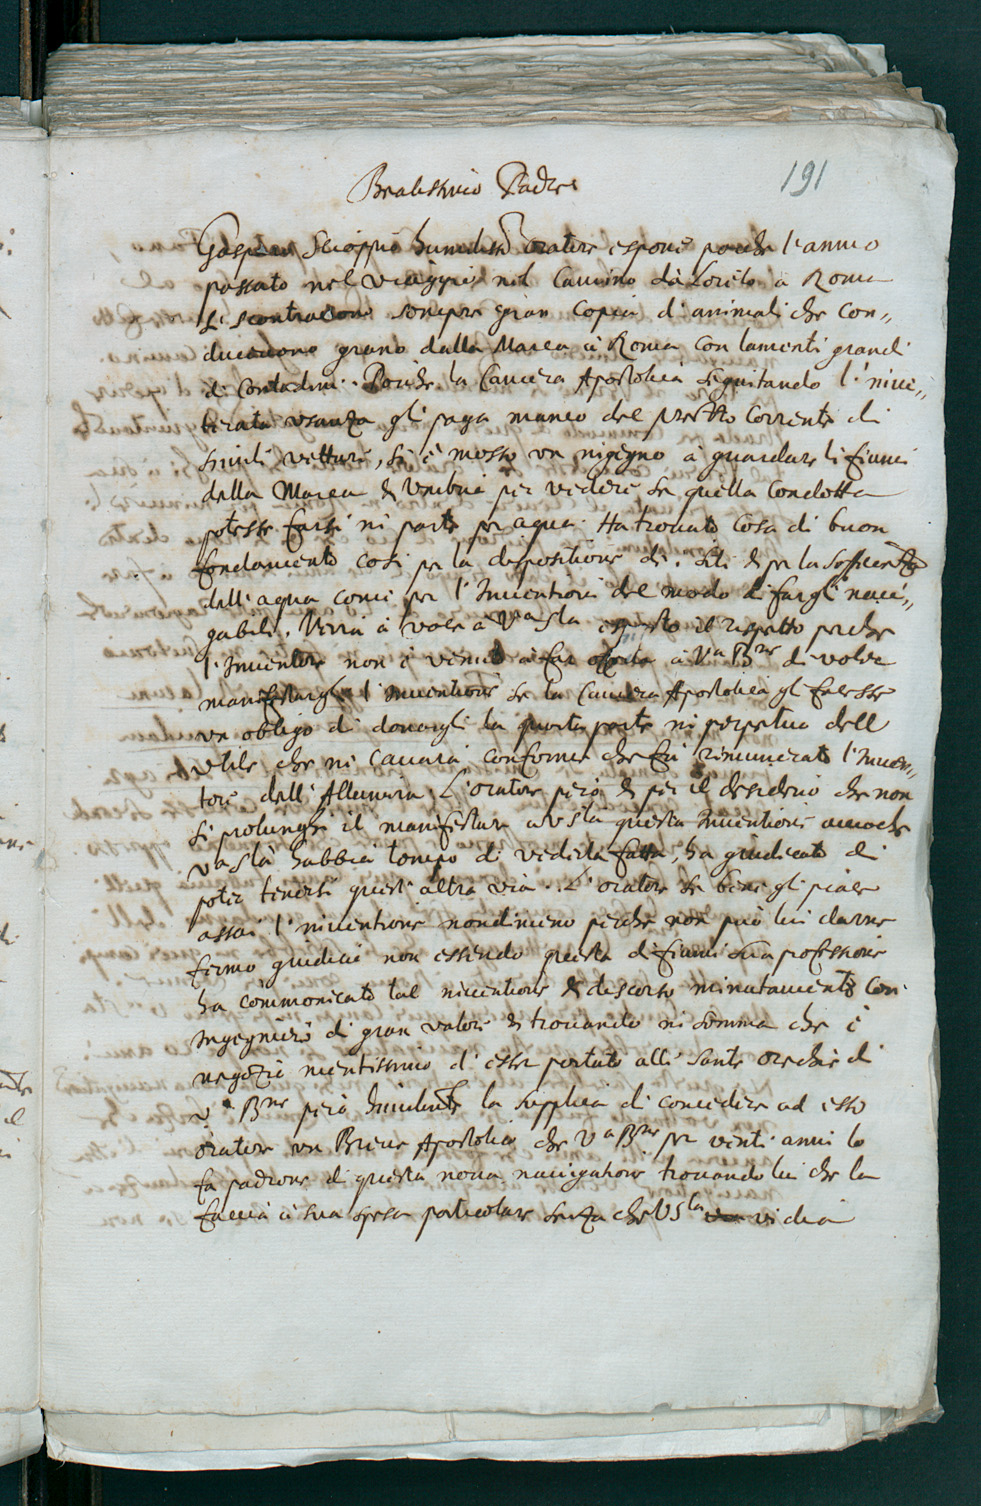 191
Beatissimo Padre
Gasparo Scioppio humiliss.º oratore espone poiche l'anno
passato nel viaggio nel Camino da Loreto a Roma
si scontravano sempre gran copia d'animali che con„
ducevono grano dalla Marca à Roma con lamenti grandi
di contadini. Poiche la Camera Apostolica seguitando l'inve„
terata usanza gli paga manco del prezzo corrente di
simili vetture, si è mosso un ingegno à guardare li fiumi
della Marca et Umbria per vedere se quella condotta
potesse farsi in parte per aqua. Ha trovato cosa di buon
fondamento così per la dispositione di siti et per la sofficienza
dell'aqua come per l'Inventione del modo di fargli navi„
gabili. Verrà à vole à V.ª S.tà esposto il rispetto perche
l'Inventore non è venuto à far offerta à V.ª B.ne di voler
manifestargli l'Inventione se la Camera Apostolica gli facesse
un obligo di donargli la quarta parte in perpetuo dell
utile che ne cavarà conforme che fù rimunerato l'Inven„
tore dell'Allumiera. L'oratore però et per il desiderio che non
si prolunghi il manifestare a V.S.tà questa Inventione accioche
V.ª S.tà habbia tempo di vederla fatta, ha giudicato di
poter tenersi quest'altra via. L'oratore se bene gli piace
assai l'inventione nondimeno perche non può lui darne
fermo giudicio non essendo questa di fiumi sua professione
ha communicato tal inventione et discorso minutamente con
Ingegniero di gran valore et trovando in somma che è
negozio meritissimo d'esser portato alle sante orechie di
V.ª B.ne però humilmente la supplica di concedere ad esso
oratore un Breve Apostolico che V.ª B.ne per venti anni lo
fa padrone di questa nova navigatione trovando lui che la
faccia à sua spesa particolare senza che V.S.tà vi dia